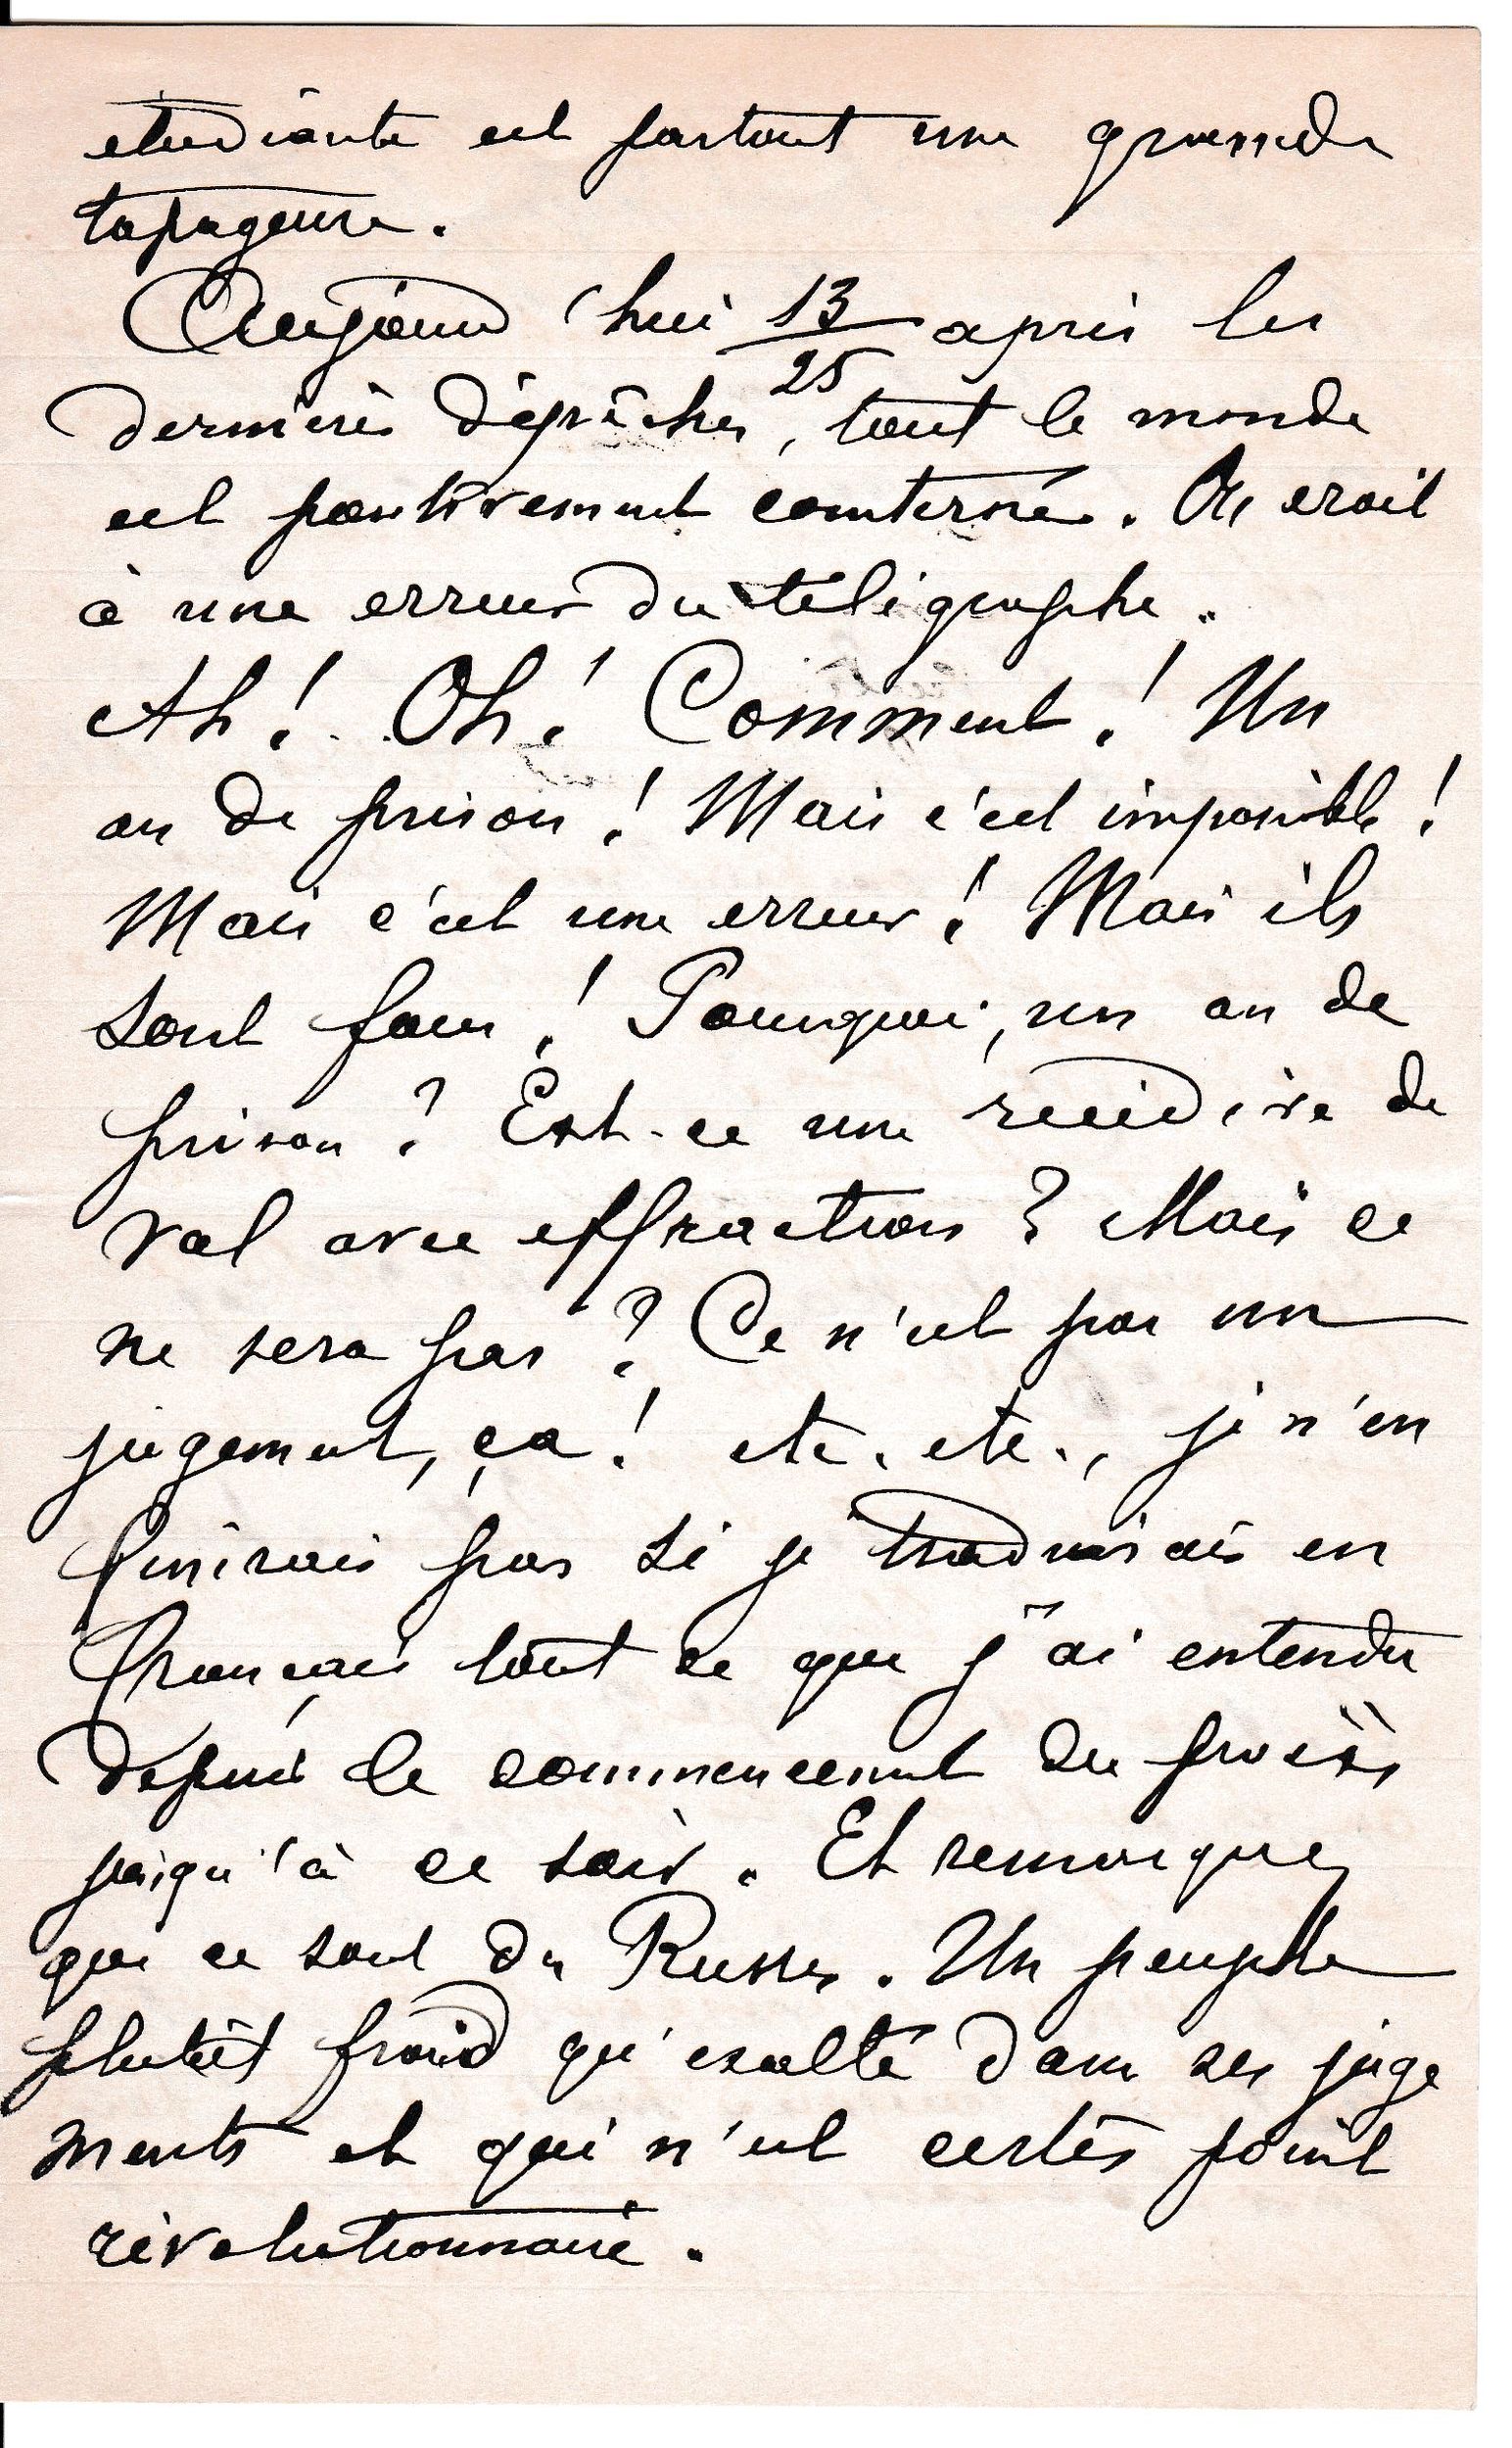 étudiante est partout une grande
tapageuse.
Aujourd'hui 13/25 après les
dernières dépêches, tout le monde
est positivement consterné. On croit
à une erreur du télégraphe.
Ah! Oh! Comment! Un
an de prison! Mais c'est impossible!
Mais c'est une erreur! Mais ils
sont fous! Pourquoi, un an de
prison? Est-ce une récidive de
vol avec effraction? Mais ce
ne sera pas? Ce n'est pas un
jugement, ça! etc. etc., je n'en
finirais pas si je traduisais en
français tout ce que j'ai entendu
depuis le commencement du procès
jusqu'à ce soir. Et remarquez
que ce sont des Russes. Un peuple
plutôt froid qu'exalté dans ses juge
ments et qui n'est certes point
révolutionnaire.